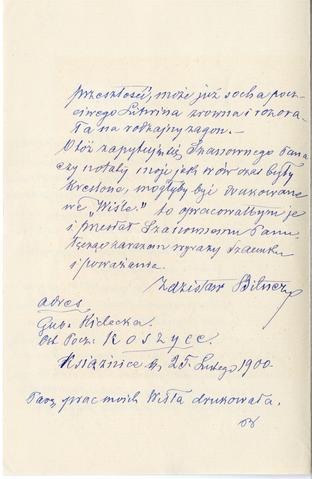 przeszłość, może już socha pocz-
ciwego Litwina zrównała i rozora-
ła na rodzajny zagon. —
Otóż zapytuję się Szanownego Pana
czy notaty moje jak wówczas były
kreślone, mogłyby być drukowane
we „Wiśle." to opracowałbym je
i przesłał Szanownemu Panu.
Łącząc zarazem wyrazy szacunku
i poważania.
Zdzisław
adres
Gub. Kielecka.
Ost. Pocz. Koszyce.
Książnice 25. Lutego 1900.
Parę prac moich Wisła drukowała.